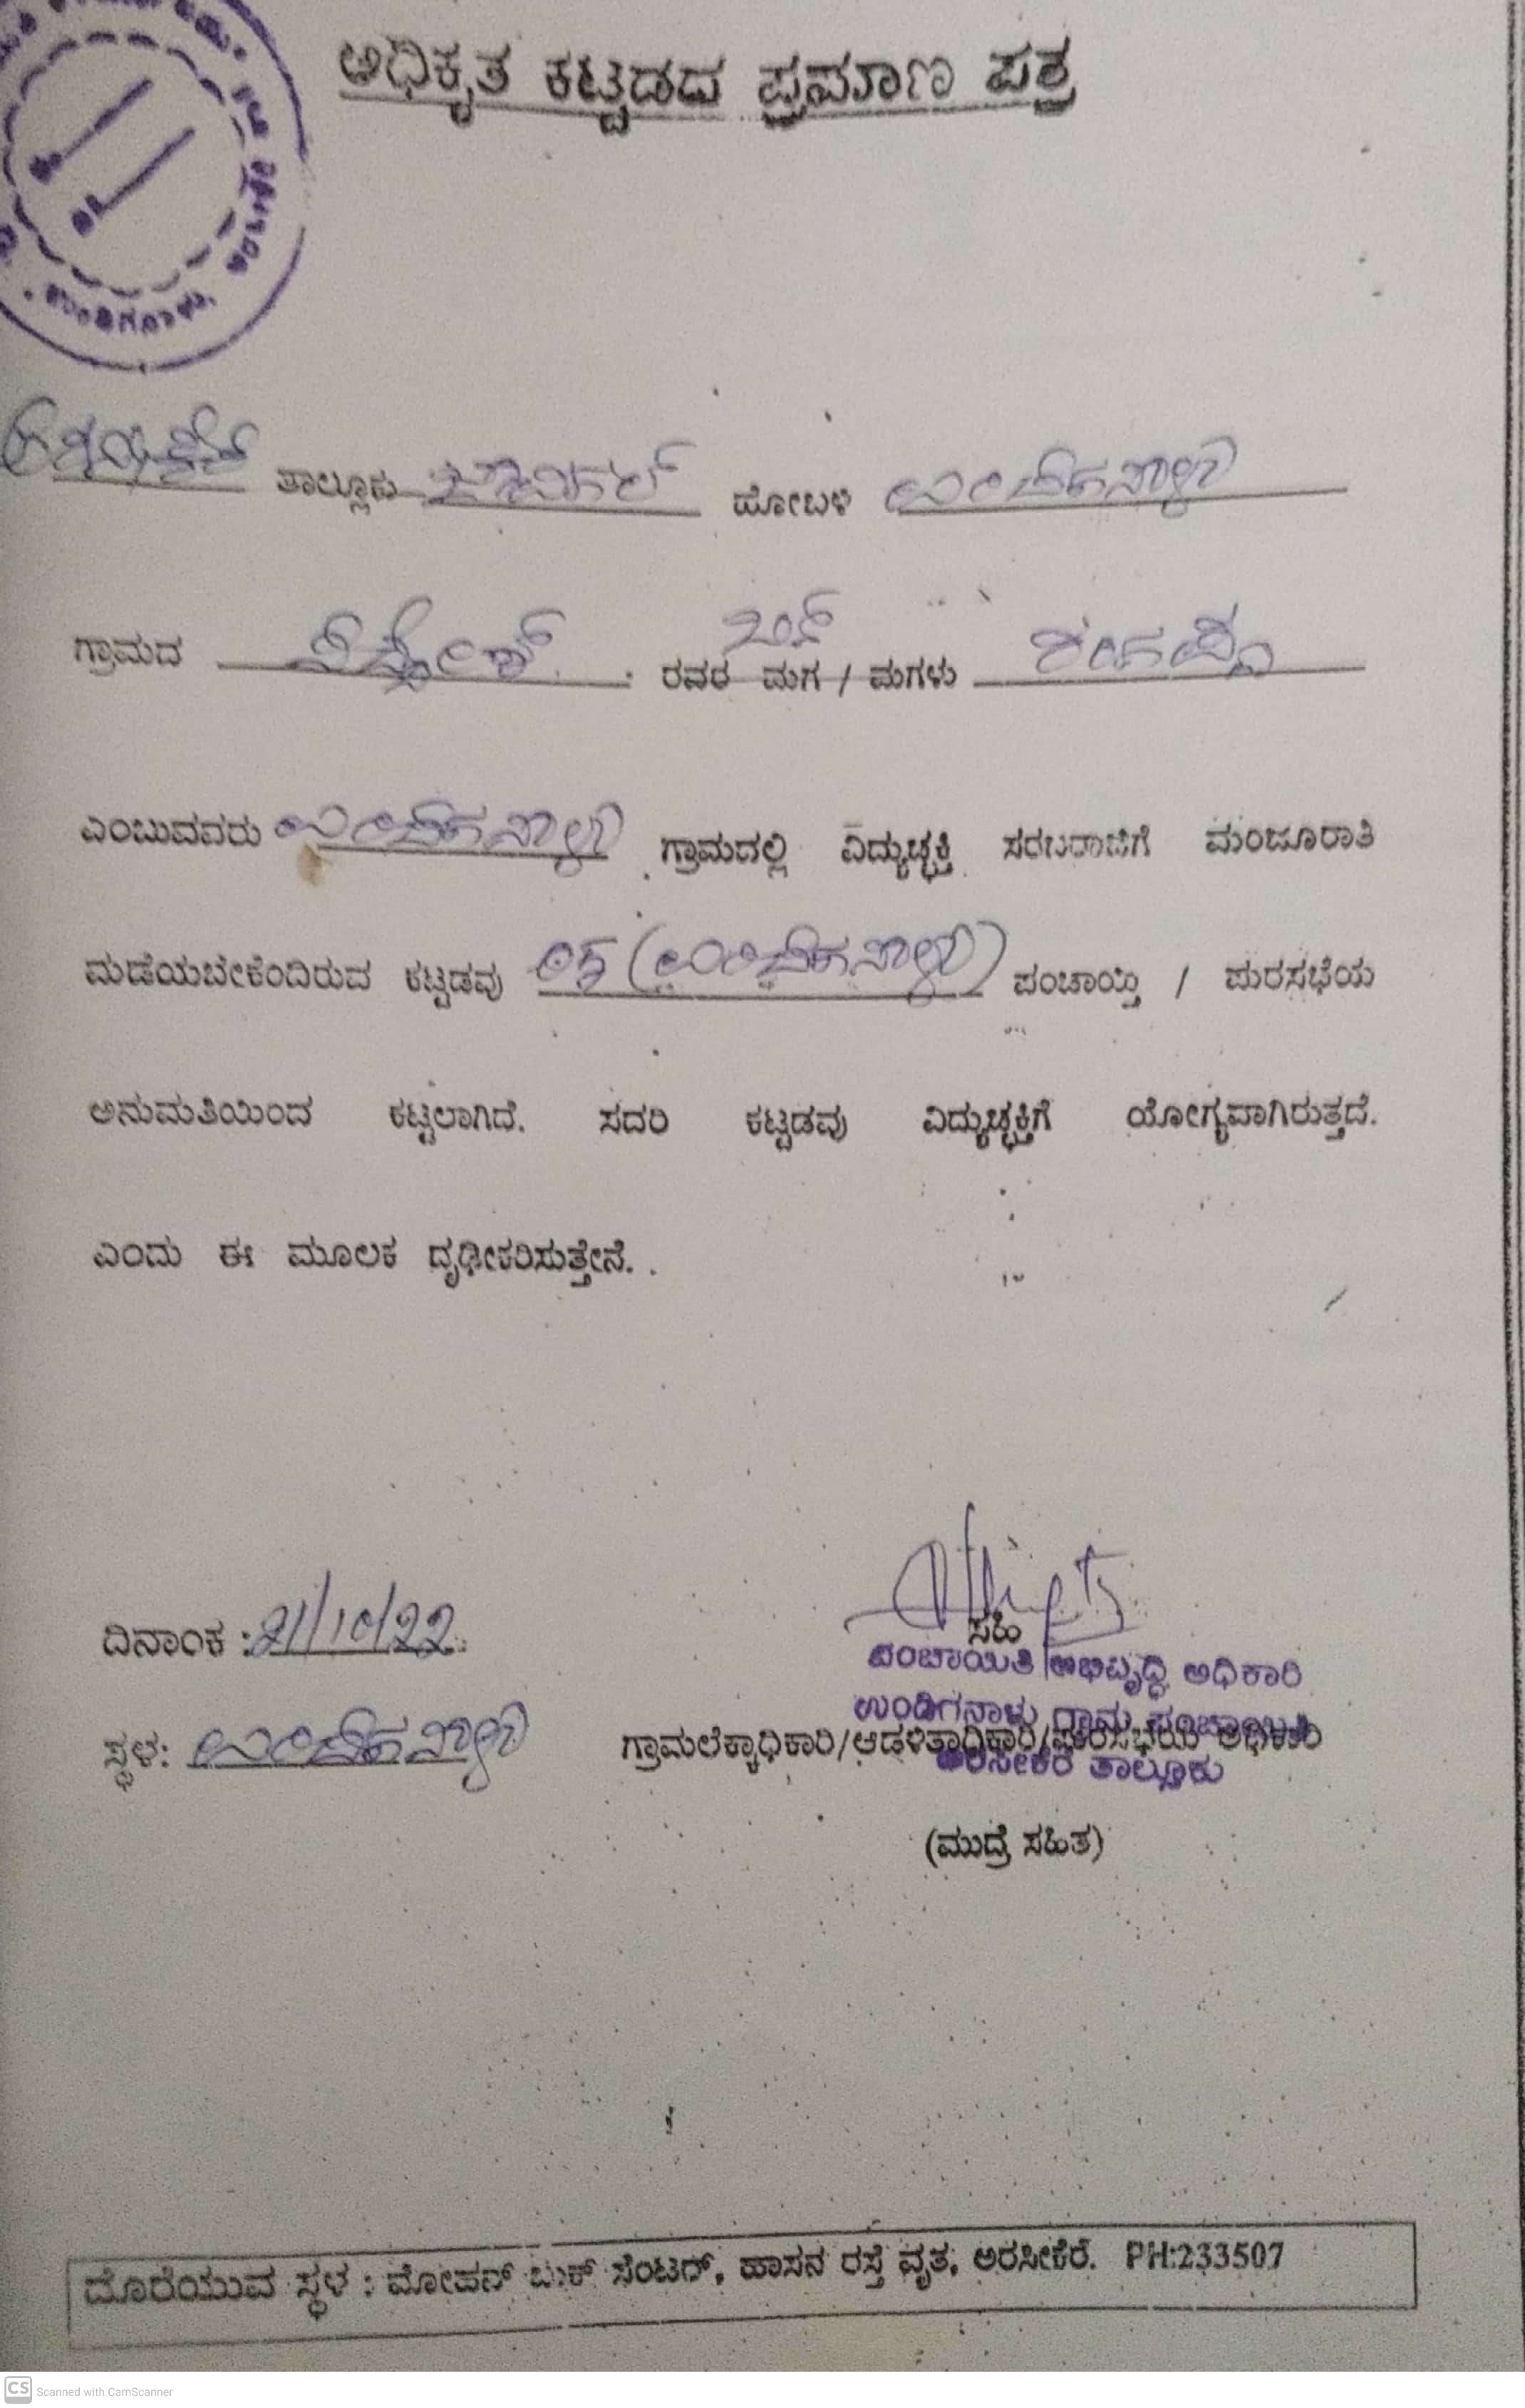 ಅಧಿಕೃತ ಕಟ್ಟಡದ ಪ್ರಮಾಣ ಪತ್ರ
ತಾಲ್ಲೂಕು ಹೋಬಳಿ ಉಂಡಿಗನಾಳು
ಗ್ರಾಮದ ರವರ ಮಗ / ಮಗಳು
ಎಂಬುವವರು ಉಂಡಿಗನಾಳು ಗ್ರಾಮದಲ್ಲಿ ವಿದ್ಯುಚ್ಛಕ್ತಿ ಸರಬರಾಜಿಗೆ ಮಂಜೂರಾತಿ
ಪಡೆಯಬೇಕೆಂದಿರುವ ಕಟ್ಟಡವು 05 (ಉಂಡಿಗನಾಳು) ಪಂಚಾಯ್ತಿ / ಪುರಸಭೆಯ
ಅನುಮತಿಯಿಂದ ಕಟ್ಟಲಾಗಿದೆ. ಸದರಿ ಕಟ್ಟಡವು ವಿದ್ಯುಚ್ಛಕ್ತಿಗೆ ಯೋಗ್ಯವಾಗಿರುತ್ತದೆ.
ಎಂದು ಈ ಮೂಲಕ ದೃಢೀಕರಿಸುತ್ತೇನೆ.
ದಿನಾಂಕ : 21/10/22
ಸಹಿ
ಪಂಚಾಯಿತಿ ಅಭಿವೃದ್ಧಿ ಅಧಿಕಾರಿ
ಉಂಡಿಗನಾಳು ಗ್ರಾಮ ಪಂಚಾಯಿತಿ
ಸ್ಥಳ: ಉಂಡಿಗನಾಳು ಗ್ರಾಮಲೆಕ್ಕಾಧಿಕಾರಿ/ಆಡಳಿತಾಧಿಕಾರಿ/ಪುರಸಭೆಯ ಅಧಿಕಾರಿ
ಅರಸೀಕೆರೆ ತಾಲ್ಲೂಕು
(ಮುದ್ರೆ ಸಹಿತ)
ದೊರೆಯುವ ಸ್ಥಳ : ಮೋಹನ್ ಬುಕ್ ಸೆಂಟರ್, ಹಾಸನ ರಸ್ತೆ ವೃತ, ಅರಸೀಕೆರೆ. PH:233507
CS Scanned with CamScanner